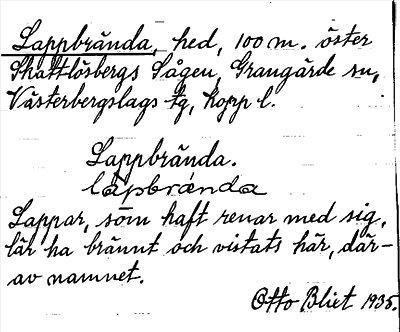 Lappbrända, hed, 100 m. öster
Skattlösbergs Sågen, Grangärde sn,
Västerbergslags tg, Kopp l.
Lappbrända.
lapbrända
Lappar, som haft renar med sig,
lär ha brännt och vistats här, där-
av namnet.
Otto Blixt 1935.